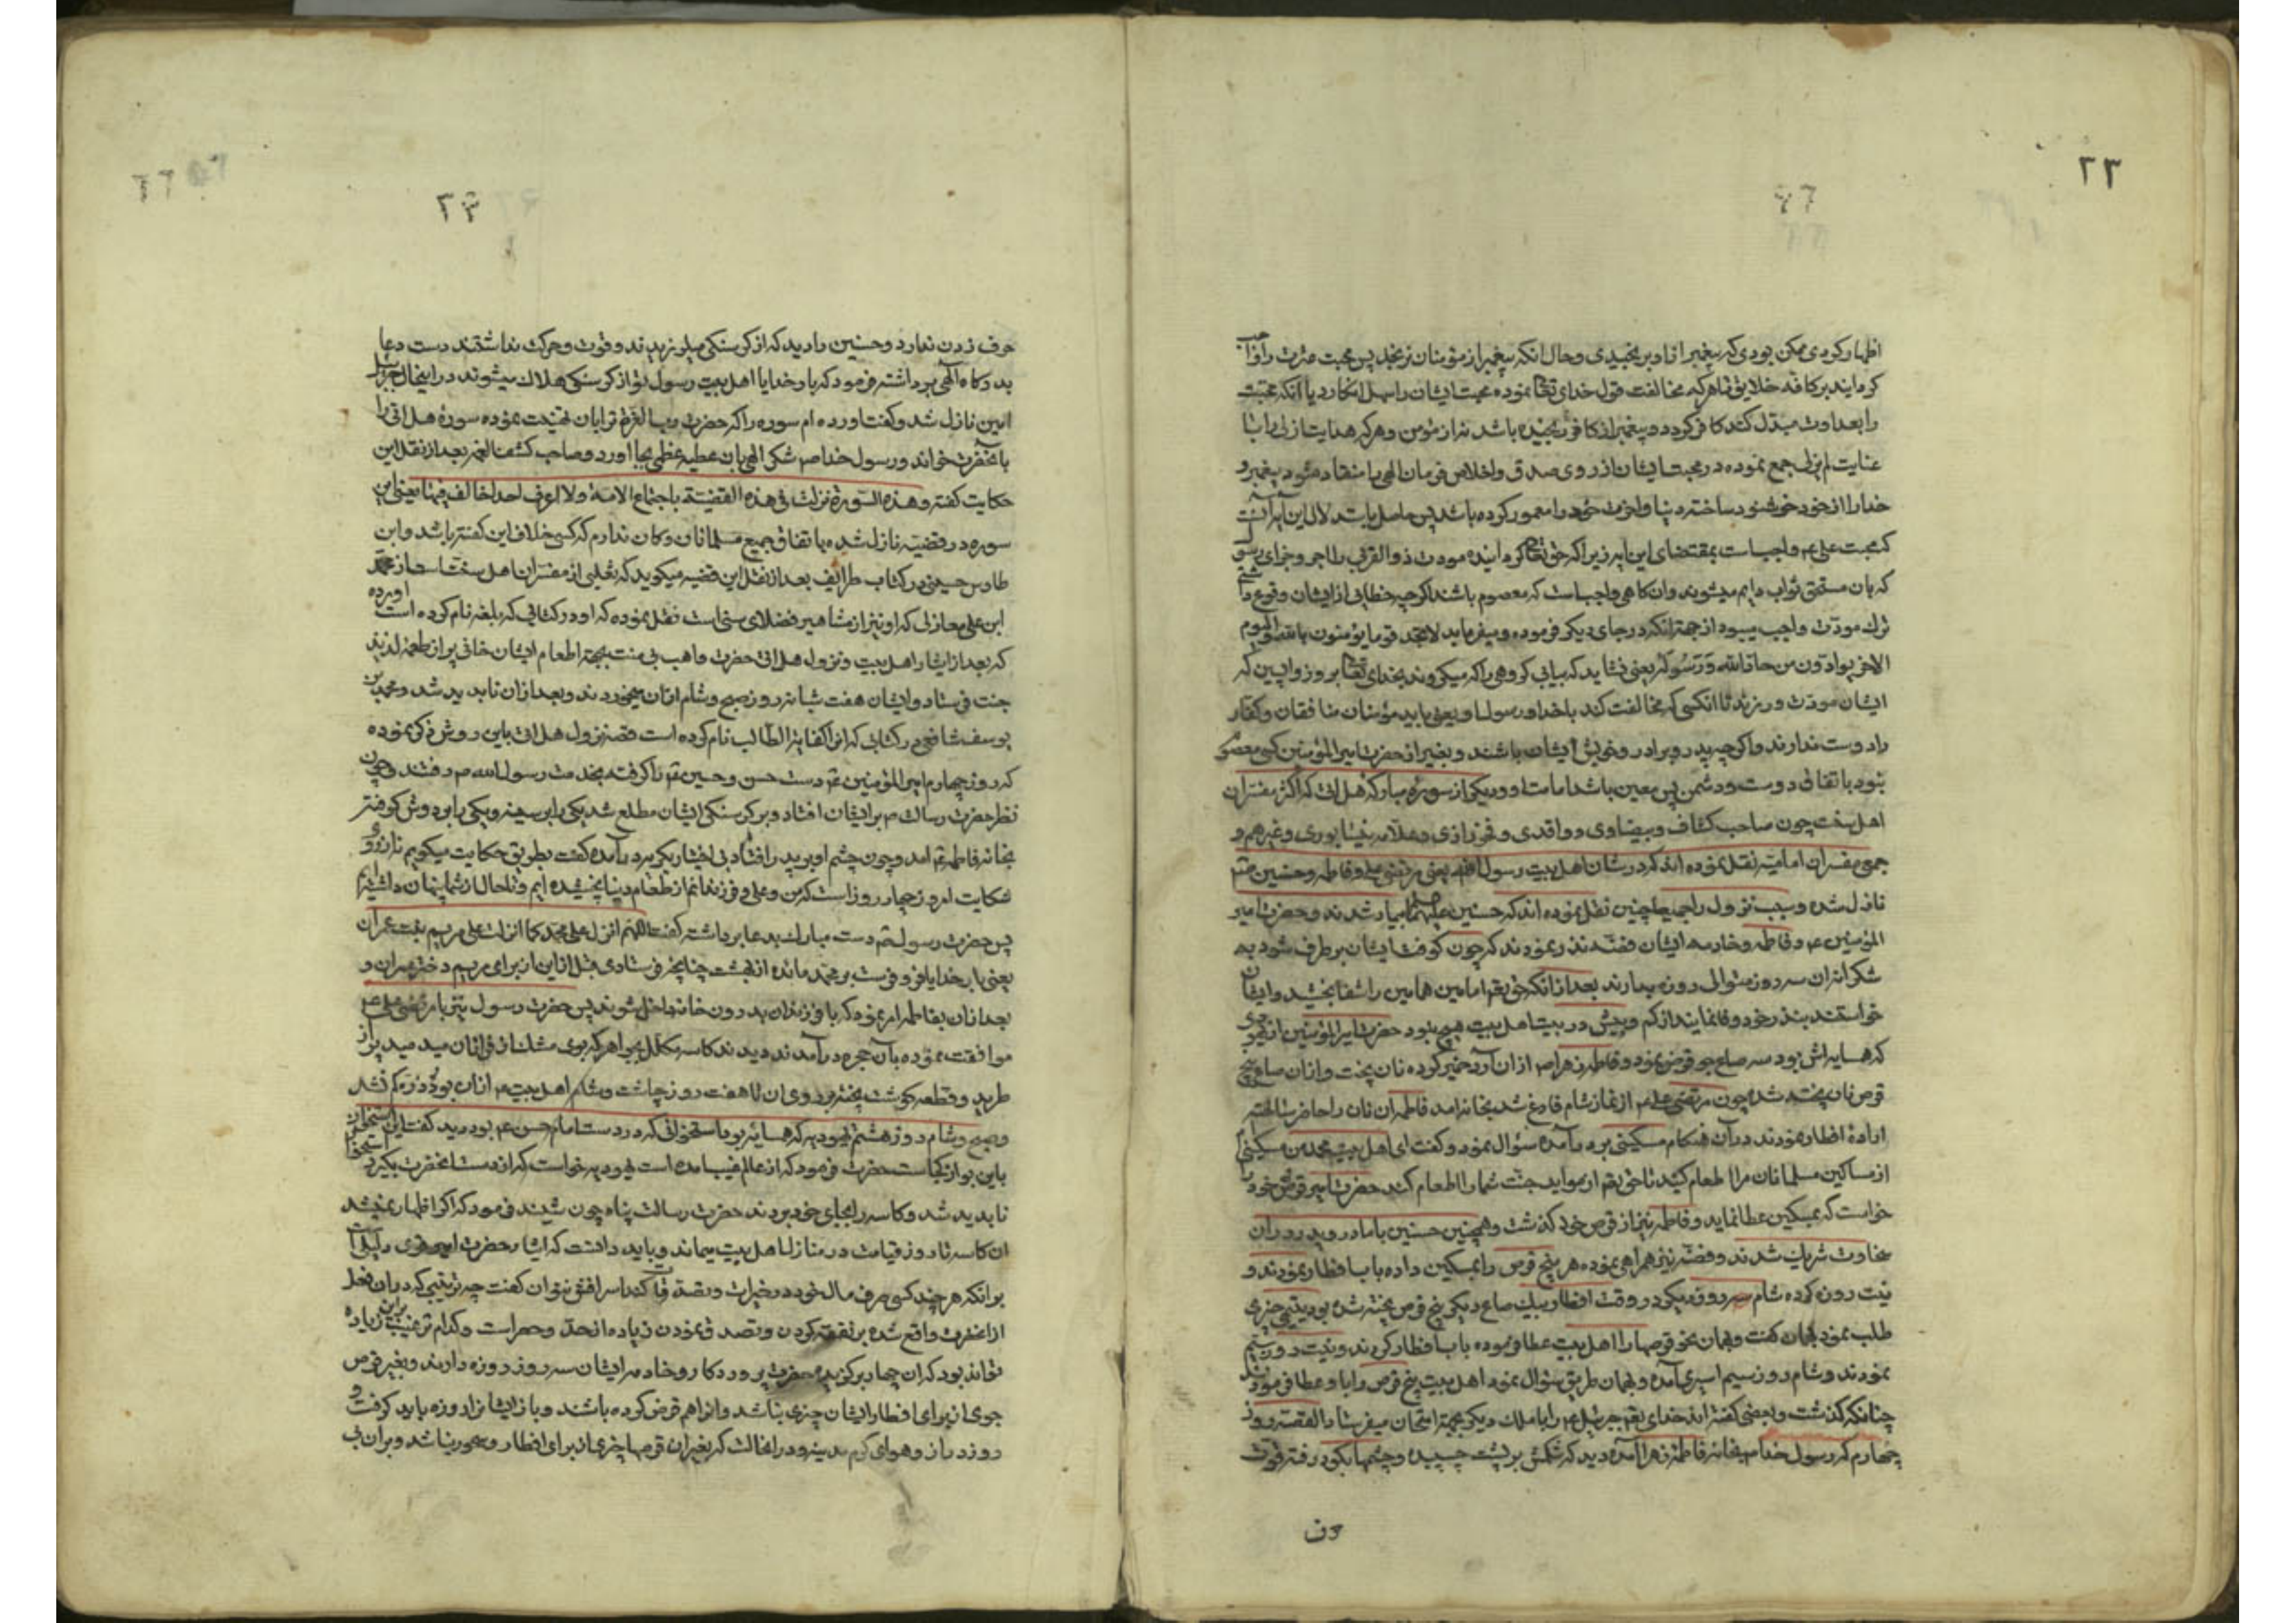 ۲۳
اظهار کردی ممکن بودی که پیغمبر از او برنجیدی و حال آنکه پیغمبر از مؤمنان نرنجد پس محبت عترت را واجب
کردایند بر کافه خلایق تا هر که مخالفت قول خدای تعالی نموده محبت ایشان را سهل انکارد یا آنکه محبت
را بعداوت مبدّل کند کافر کردد و پیغمبر از کافر رنجیده باشد نه از مؤمن و هر کرا هدایت ازلی را با
عنایت لم یزلی جمع نموده در محبت ایشان از روی صدق و اخلاص فرمان الهی را منقاد شود پیغمبر و
خدا را از خود خوشنود ساخته دنیا و اخرت خود را معمور کرده باشد پس حاصل استدلال این آیه آنست
که محبت علی ع واجب است بمقتضای این آیه زیرا که حق تعالی کردانیده مودت ذو القربی را اجر و جزای رسول
که بان مستحق ثواب دایم میشوند و ان کاهی واجب است که معصوم باشند اکر چه خطایی از ایشان وقوع داشتی
ترک مودّت واجب میبود از جهة آنکه در جای دیکر فرموده و میفرماید لا تجد قوما یؤمنون بالله و الیوم
الاخر یوادّون من حادّ الله و رسوله یعنی نشاید که بیابی کروهی را که میکروند بخدای تعالی و بروز واپسین که
ایشان مودّت ورزند با انکسی که مخالفت کند با خدا و رسول او یعنی باید مؤمنان منافقان و کفار
را دوست ندارند و اکر چه پدر و برادر و خویش ایشان باشند و بغیر از حضرت امیر المؤمنین کسی معصوم
نبود باتفاق دوست و دشمن پس معین باشد امامت او و دیکر از سوره مبارکه هل اتی که اکثر مفسران
اهل سنت چون صاحب کشاف و بیضاوی و واقدی و فخر رازی و علامه نیشابوری و غیرهم و
جمیع مفسران امامیّه نقل نموده اند که در شان اهل بیت رسول الله یعنی مرتضی علی و فاطمه و حسنین ع
نازل شده و سبب نزول را چنین نقل نموده اند که حسنین علیهما بیمار شدند و حضرت امیر
المؤمنین ع و فاطمه و خادمه ایشان فضّه نذر نمودند که چون کوفت ایشان برطرف شود به
شکرانه ان سه روز متوالی روزه بدارند بعد از انکه حق تعم امامین همامین را شفا بخشید و ایشان
خواستند بنذر خود وفا نمایند از کم و بیش در بیت اهل بیت هیچ نبود حضرت امیر المؤمنین از یهودی
که همسایه اش بود سه صاع جو قرض نمود و فاطمه زهرا ص از ان آرد خمیر کرده نان پخت و از ان صاع پنج
قرص نان پخته شد چون مرتضی علی ع از نماز شام فارغ شد بخانه امد فاطمه ان نان را حاضر ساخته
ارادهٔ افطار نمودند در آن هنکام مسکینی بر در آمده سؤال نمود و کفت ای اهل بیت محمد من مسکینم
از مساکین مسلمانان مرا طعام کنید تا حق تعم از مواید جنّت شما را اطعام کند حضرت امیر قرص خود را
خواست که بمسکین عطا نماید و فاطمه نیز از قرص خود کذشت و همچنین حسنین با مادر و پدر در ان
سخاوت شریک شدند و فضّه نیز همراهی نموده هر پنج قرص را بمسکین داده بآب افطار نمودند و
نیّت روزه کرده شام روز دیکر در وقت افطار بیک صاع دیکر پنج قرص پخته شده بود یتیمی چیزی
طلب نمود بهمان کفت و بهمان نحو قرصها را اهل بیت عطا فرموده بآب افطار کردند و نیّت روزه سیم
نمودند و شام روز سیم اسیری آمده و بهمان طریق سؤال نمود اهل بیت پنج قرص را باو عطا فرمودند
چنانکه کذشت و بعضی کفته اند خدای تعم جبرئیل ع را با ملک دیکر بجهة امتحان میفرستاد القصه روز
چهارم که رسول خدا ص بخانه فاطمه زهرا آمده دید که شکمش بر پشت چسبیده و چشمها بکود رفته قوت
حرف
۲۳
حرف زدن ندارد و حسنین را دید که از کرسنکی میلرزیدند و قوت و حرکت نداشتند دست دعا
بدرکاه آلهی برداشته فرمود که بار خدایا اهل بیت رسول تو از کرسنکی هلاک میشوند در اینحال جبرئیل
امین نازل شد و کفت اورده ام سوره را که حضرت رب العزة ترا بان تهنیت نموده سورهٔ هل اتی را
بآنحضرت خواند و رسول خدا ص شکر الهی بان عطیه عظمی بجا اورد و صاحب کشف الغمه بعد از نقل این
حکایت کفته و هذه السّورة نزلت فی هذه القضیّة باجماع الامة و لا اعرف احدا خالف فیها یعنی این
سوره در قضیّه نازل شده باتفاق جمیع مسلمانان و کمان ندارم که کسی خلاف این کفته باشد و ابن
طاوس حسینی در کتاب طرایف بعد از نقل این قضیه میکوید که ثعلبی از مفسران اهل سنت است از محمد
ابن علی مغازلی که او نیز از مشاهیر فضلای سنی است نقل نموده که او در کتابی که بلغه نام کرده است اورده
که بعد از ایثار اهل بیت و نزول هل اتی حضرت واهب بی منت بجهة اطعام ایشان خانی پر از طعمهٔ لذیذ
جنت فرستاد و ایشان هفت شبانه روز صبح و شام از ان میخوردند و بعد از ان ناپدید شد و محمد بن
یوسف شافعی در کتابی که انرا کفایة الطالب نام کرده است قصه نزول هل اتی باین روش ذکر نموده
که روز چهارم امیر المؤمنین ع دست حسن و حسین ع را کرفته بخدمت رسول الله ص رفتند و چون
نظر حضرت رسالت ص بر ایشان افتاد و بر کرسنکی ایشان مطلع شد یکی را بر سینه و یکی را بر دوش کرفته
بخانه فاطمه ع امد و چون چشم او بر پدر افتاد بی اختیار بکریه در آمده کفت بطریق حکایت میکویم نه از روی
شکایت امروز چهار روز است که من و علی و فرزندانم از طعام دنیا نچشیده ایم و تا حال از شما پنهان داشته ایم
پس حضرت رسول ص دست مبارک بدعا برداشته کفت اللهم انزل علی محمد کما انزلت علی مریم بنت عمران
یعنی بار خدایا فرو فرست بر محمّد مائده از بهشت چنانچه فرستادی قبل از این از برای مریم دختر عمران و
بعد از ان بفاطمه امر نموده که با فرزندان بدرون خانه داخل شوند پس حضرت رسول نیز با مرتضی علی ع
موافقت نموده بآن حجره در آمدند دیدند کاسه مکلل بجواهر که بوی مشک از ان میدمید پر از
طرید و قطعه کوشت پخته بر روی ان تا هفت روز چاشت و شام اهل بیت ع از ان بود و ذره کم نشد
و صبح و شام روز هشتم یهودیه که همسایه بود استخوانی که در دست امام حسن ع بود دید کفت این استخوان
باین بو از کجاست حضرت فرمود که از عالم غیب آمده است یهودیه خواست که از دست انحضرت بکیرد استخوان
ناپدید شد و کاسه را بجای خود بردند حضرت رسالت پناه چون شنیدند فرمود که اکر اظهار نمیشد
ان کاسه تا روز قیامت در منازل اهل بیت میماند و باید دانست که ایثار حضرت امیر قوی دلیلی است
بر انکه هر چند کسی صرف مال خود در خیرات و تصدّقات کند اسراف نتوان کفت چه ترغیبی که در ان فعل
از انحضرت واقع شده بر نفقه کردن و تصدق نمودن زیاده از حدّ و حصر است و کدام ترغیب از این زیاده
تواند بود که ان چهار بر کزیده حضرت پروردکار و خادمه ایشان سه روز روزه دارند و بغیر قرص
جوی از برای افطار ایشان چیزی نباشد و انرا هم قرض کرده باشند و باز ایشان را روزه باید کرفت و
روز دراز و هوای کرم مدینه و در انحالت که بغیر ان قرصها چیزی از برای افطار و سحور نباشد و بر ان بی